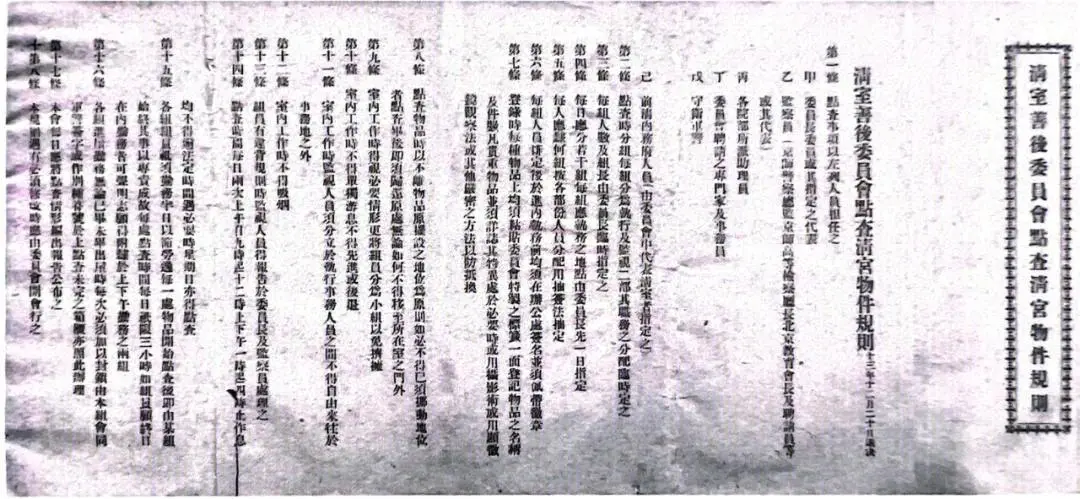 清室善後委員會點查清宮物件規則
清室善後委員會點查清宮物件規則 十三年十二月二十日議決
第一條 點查事項以左列人員担任之
甲 委員長委員或其指定之代表
乙 監察員(京師警察總監京師高等檢察廳長北京教育會長及聘請員等
或其代表)
丙 各院部所派助理員
丁 委員會聘請之專門家及事務員
戊 守衛軍警
己 前清內務府人員(由委員會中代表清室者指定之)
第二條 點查時分組每組分爲執行及監視二部其職務之分配臨時定之
第三條 每組人數及組長由委員長臨時指定之
第四條 每日應分若干組每組應執務之地點由委員長先一日指定
第五條 每人應隸何組按各部份人員分配用抽籤法抽定
第六條 每組人員排定後於進內執務前均須在辦公處簽名並須佩帶徽章
第七條 登錄時每種物品上均須粘貼委員會特製之標籤一面登記物品之名稱
及件數凡貴重物品並須詳誌其特異處於必要時或用攝影術或用顯微
鏡觀察法或其他嚴密之方法以防抵換
第八條 點查物品時以不離物品原擺設之地位爲原則如必不得已須挪動地位
者點查畢後即須歸還原處無論如何不得移至所在室之門外
第九條 室內工作時得視必要情形更將組員分爲小組以免擠擁
第十條 室內工作時不得單獨游息不得先進或後退
第十一條 室內工作時監視人員須分立於執行事務人員之間不得自由來往於
事務地之外
第十二條 室內工作時不得吸烟
第十三條 組員有違背規則時監視人員得報告於委員長及監察員處理之
第十四條 點查時間每日兩次上午自九時起十二時止下午一時起四時止作息
均不得逾法定時間遇必要時星期日亦得點查
第十五條 各組組員祗須擔務半日以節勞逸每一處物品開始點查後即由某組
始終其事以專責成故每處點查時間每日祗限三小時如組員願終日
在內執務者可聲明志願得附隸於上下午執務之兩組
第十六條 各組進屋執務無論已畢未畢出屋時每次必須加以封鎖由本組會同
軍警簽字或作別種符號於上點查未完之箱櫃亦照此辦理
第十七條 本會每日應將點查情形編出報告公布之
第十八條 本規則遇有必須修改時應由委員會開會行之